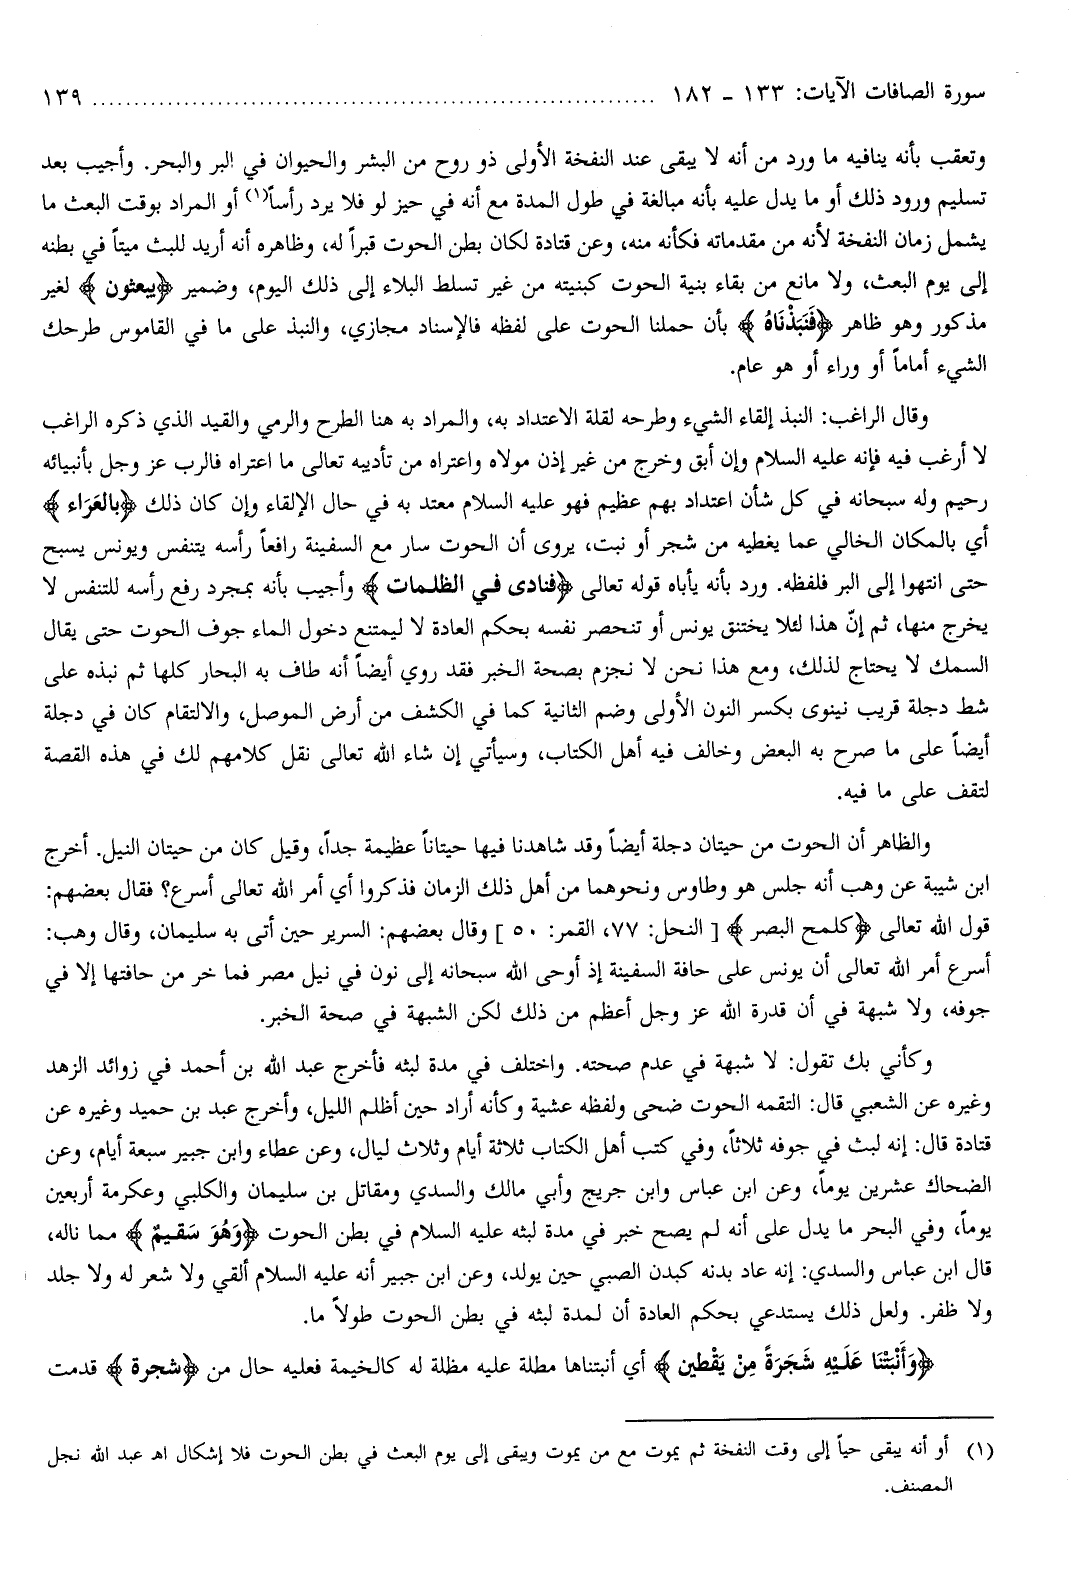 سورة الصافات الآيات: ١٣٣ ـ ١٨٢ ........................................................ ١٣٩
وتعقب بأنه ينافيه ما ورد من أنه لا يبقى عند النفخة الأولى ذو روح من البشر والحيوان في البر والبحر. وأجيب بعد
تسليم ورود ذلك أو ما يدل عليه بأنه مبالغة في طول المدة مع أنه في حيز لو فلا يرد رأساً(١) أو المراد بوقت البعث ما
يشمل زمان النفخة لأنه من مقدماته فكأنه منه، وعن قتادة لكان بطن الحوت قبراً له، وظاهره أنه أريد للبث ميتاً في بطنه
إلى يوم البعث، ولا مانع من بقاء بنية الحوت كبنيته من غير تسلط البلاء إلى ذلك اليوم، وضمير ﴿يبعثون﴾ لغير
مذكور وهو ظاهر ﴿فَنَبَذْنَاهُ﴾ بأن حملنا الحوت على لفظه فالإسناد مجازي، والنبذ على ما في القاموس طرحك
الشيء أماماً أو وراء أو هو عام.
وقال الراغب: النبذ إلقاء الشيء وطرحه لقلة الاعتداد به، والمراد به هنا الطرح والرمي والقيد الذي ذكره الراغب
لا أرغب فيه فإنه عليه السلام وإن أبق وخرج من غير إذن مولاه واعتراه من تأديبه تعالى ما اعتراه فالرب عز وجل بأنبيائه
رحيم وله سبحانه في كل شأن اعتداد بهم عظيم فهو عليه السلام معتد به في حال الإلقاء وإن كان ذلك ﴿بالعَرَاء﴾
أي بالمكان الخالي عما يغطيه من شجر أو نبت، يروى أن الحوت سار مع السفينة رافعاً رأسه يتنفس ويونس يسبح
حتى انتهوا إلى البر فلفظه. ورد بأنه يأباه قوله تعالى ﴿فنادى في الظلمات﴾ وأجيب بأنه بمجرد رفع رأسه للتنفس لا
يخرج منها، ثم إنّ هذا لئلا يختنق يونس أو تنحصر نفسه بحكم العادة لا ليمتنع دخول الماء جوف الحوت حتى يقال
السمك لا يحتاج لذلك، ومع هذا نحن لا نجزم بصحة الخبر فقد روي أيضاً أنه طاف به البحار كلها ثم نبذه على
شط دجلة قريب نينوى بكسر النون الأولى وضم الثانية كما في الكشف من أرض الموصل، والالتقام كان في دجلة
أيضاً على ما صرح به البعض وخالف فيه أهل الكتاب، وسيأتي إن شاء الله تعالى نقل كلامهم لك في هذه القصة
لتقف على ما فيه.
والظاهر أن الحوت من حيتان دجلة أيضاً وقد شاهدنا فيها حيتاناً عظيمة جداً، وقيل كان من حيتان النيل. أخرج
ابن شيبة عن وهب أنه جلس هو وطاوس ونحوهما من أهل ذلك الزمان فذكروا أي أمر الله تعالى أسرع؟ فقال بعضهم:
قول الله تعالى ﴿كلمح البصر﴾ [ النحل: ٧٧، القمر: ٥٠ ] وقال بعضهم: السرير حين أتى به سليمان، وقال وهب:
أسرع أمر الله تعالى أن يونس على حافة السفينة إذ أوحى الله سبحانه إلى نون في نيل مصر فما خر من حافتها إلا في
جوفه، ولا شبهة في أن قدرة الله عز وجل أعظم من ذلك لكن الشبهة في صحة الخبر.
وكأني بك تقول: لا شبهة في عدم صحته. واختلف في مدة لبثه فأخرج عبد الله بن أحمد في زوائد الزهد
وغيره عن الشعبي قال: التقمه الحوت ضحى ولفظه عشية وكأنه أراد حين أظلم الليل، وأخرج عبد بن حميد وغيره عن
قتادة قال: إنه لبث في جوفه ثلاثاً، وفي كتب أهل الكتاب ثلاثة أيام وثلاث ليال، وعن عطاء وابن جبير سبعة أيام، وعن
الضحاك عشرين يوماً، وعن ابن عباس وابن جريج وأبي مالك والسدي ومقاتل بن سليمان والكلبي وعكرمة أربعين
يوماً، وفي البحر ما يدل على أنه لم يصح خبر في مدة لبثه عليه السلام في بطن الحوت ﴿وَهُوَ سَقِيمٌ﴾ مما ناله،
قال ابن عباس والسدي: إنه عاد بدنه كبدن الصبي حين يولد، وعن ابن جبير أنه عليه السلام ألقي ولا شعر له ولا جلد
ولا ظفر. ولعل ذلك يستدعي بحكم العادة أن لمدة لبثه في بطن الحوت طولاً ما.
﴿وَأَنْبَتْنَا عَلَيْهِ شَجَرَةً مِنْ يَقْطين﴾ أي أنبتناها مطلة عليه مظلة له كالخيمة فعليه حال من ﴿شجرة﴾ قدمت
(١) أو أنه يبقى حياً إلى وقت النفخة ثم يموت مع من يموت ويبقى إلى يوم البعث في بطن الحوت فلا إشكال اهـ عبد الله نجل
المصنف.